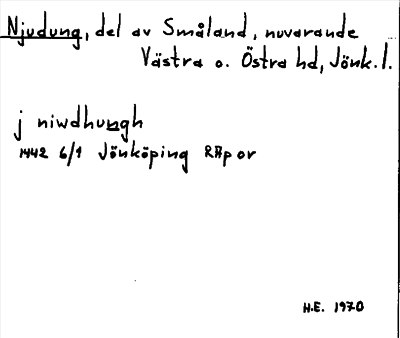 Njudung, del av Småland, nuvarande
Västra o. Östra hd, Jönk. l.
j niwdhungh
1442 6/1 Jönköping RAp or
H.E. 1970